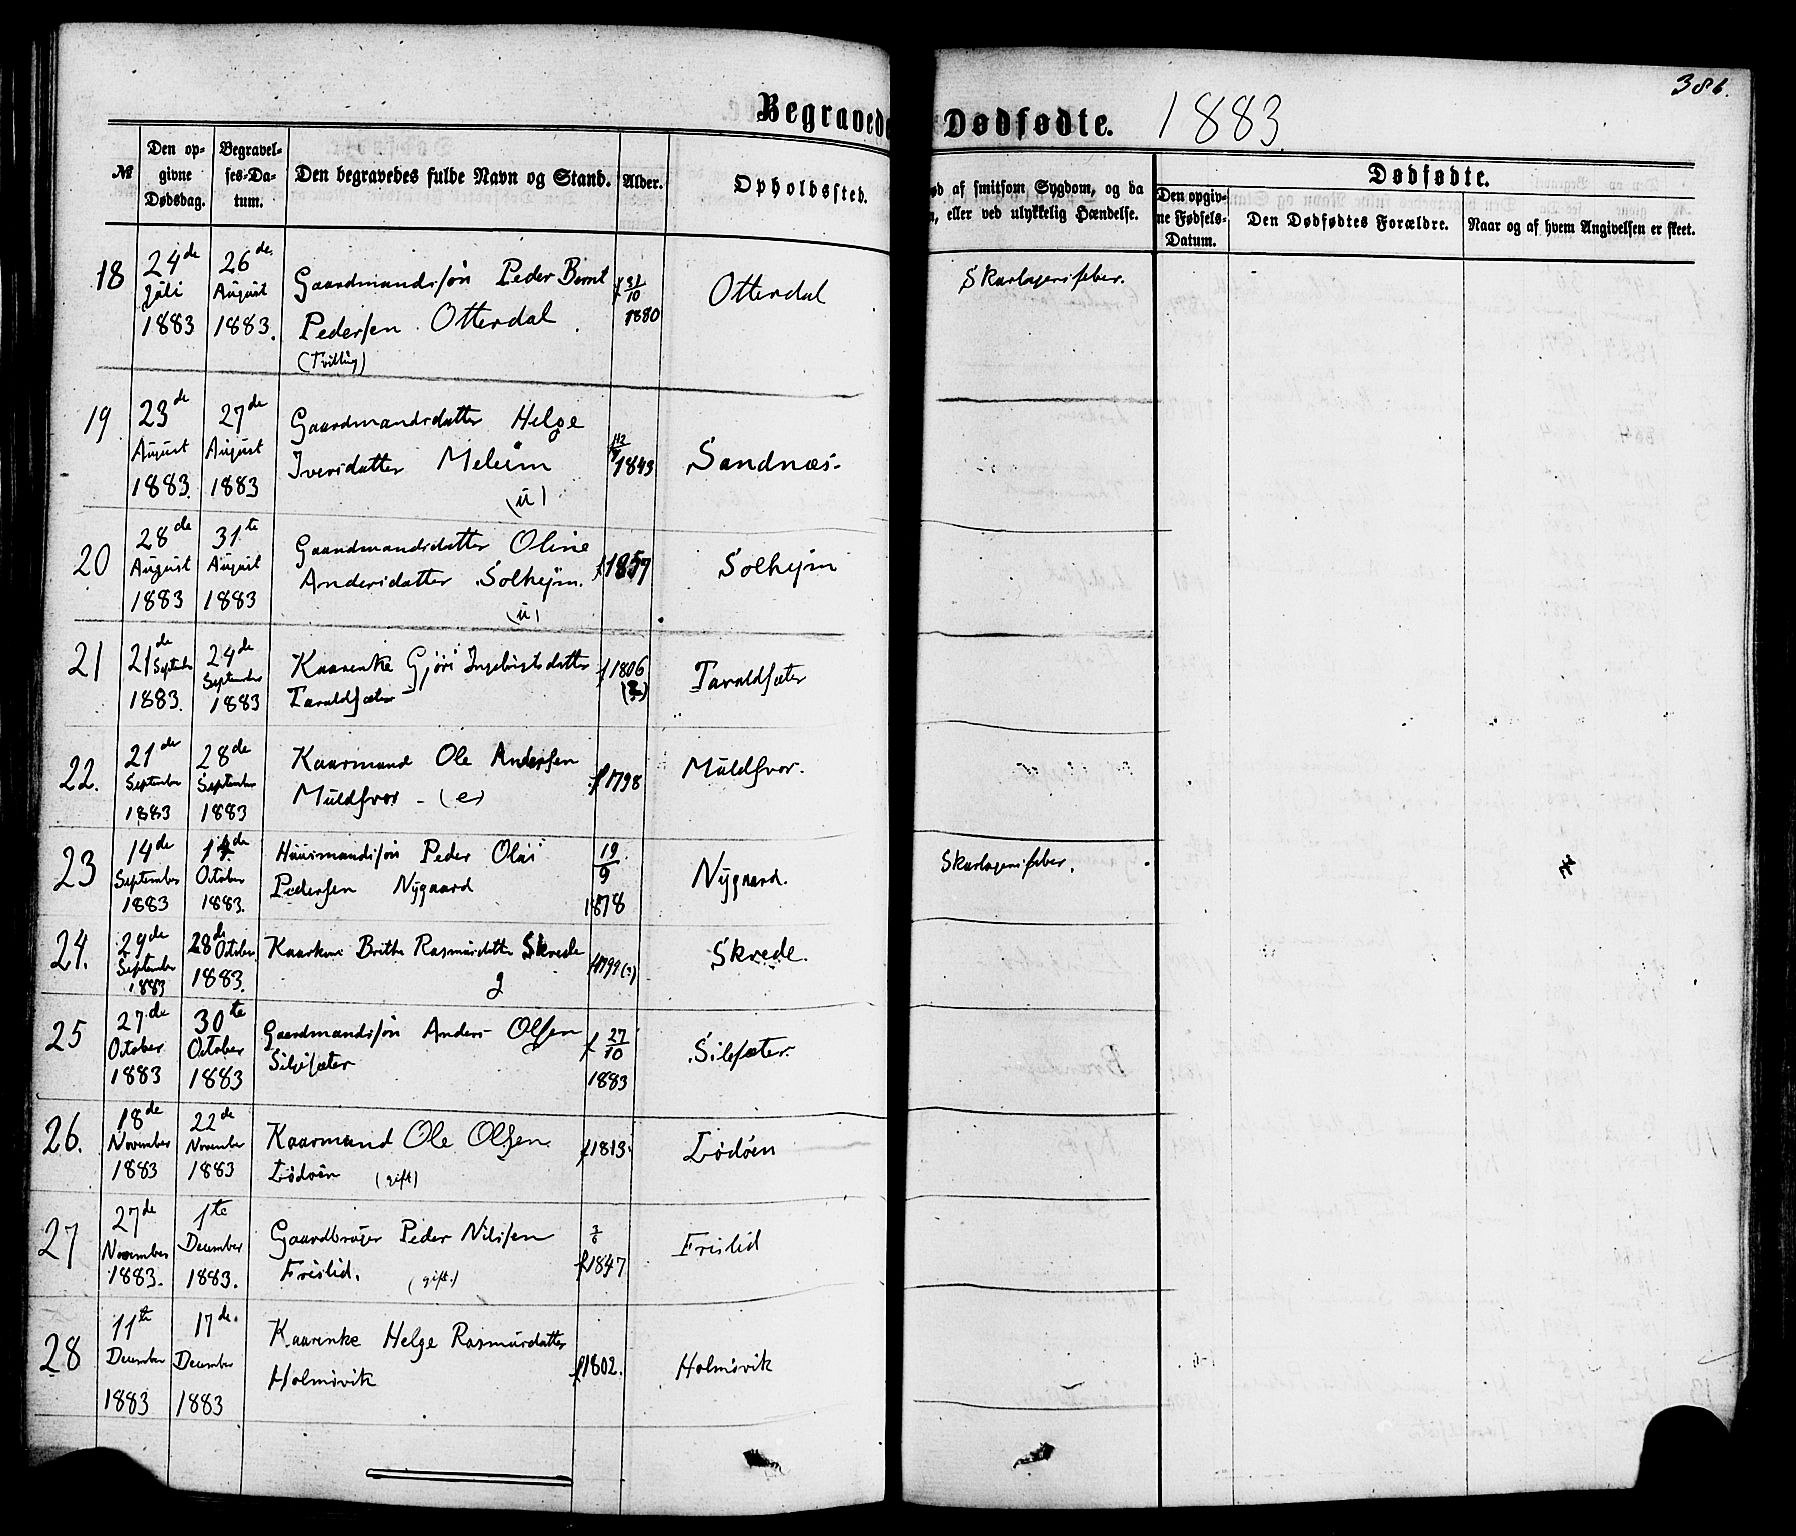 386.
Begravede
Dødfødte. 1883
№
Den op-
givne
Dødsdag.
Begravel-
ses-Da-
tum.
Den begravedes fulde Navn og Stand.
Alder.
Opholdssted.
af smitsom Sygdom, og da
eller ved ulykkelig Hændelse.
Dødfødte.
Den opgiv-
ne Fødsels-
Datum.
Den Dødfødtes Forældre.
Naar og af hvem Angivelsen er skeet.
18 24de Juli 1883 26de August 1883 Gaardmandssøn Peder Bernt f 31/10 1880 Otterdal Skarlagensfeber.
Pedersen Otterdal
(Tvilling)
19 23de August 1883 27de August 1883 Gaardmandsdatter Helge 1843 Sandnæs.
Iversdatter Meleim
(u)
20 28de August 1883 31te August 1883 Gaardmandsdatter Oline f 1857 Solhejm
Andersdatter Solhejm.
(u)
21 21de September 1883. 24de September 1883 Kaarenke Gjøri Ingebrigtsdatter f 1806 Taraldsæter
Taraldsæter
22. 21de September 1883 28de September 1883 Kaarmand Ole Andersen f 1798 Muldsvor.
Muldsvor - (e)
23 14de September 1883 October 1883. Huusmandssøn Peder Olai 19/9 1878 Nygaard. Skarlagensfeber.
Pedersen Nygaard
24. 29de September 1883 28de October 1883. Brithe Rasmusdatter Skrede f 1799 (?) Skrede.
g
25 27de October 1883 30te October 1883 Gaardmandssøn Anders Olsen f 27/10 1883 Silsæter.
Silsæter
26. 18de November 1883 22de November 1883 Kaarmand Ole Olsen f 1813. Lødøen
Lødøen (gift)
27 27de November 1883. 1te December 1883. Gaardbruger Peder Nilsen f 1847 Frislid
Frislid. (gift.)
28 11te December 1883 17de December 1883 Kaarenke Helge Rasmusdatter f 1802. Holmsvik
Holmsvik